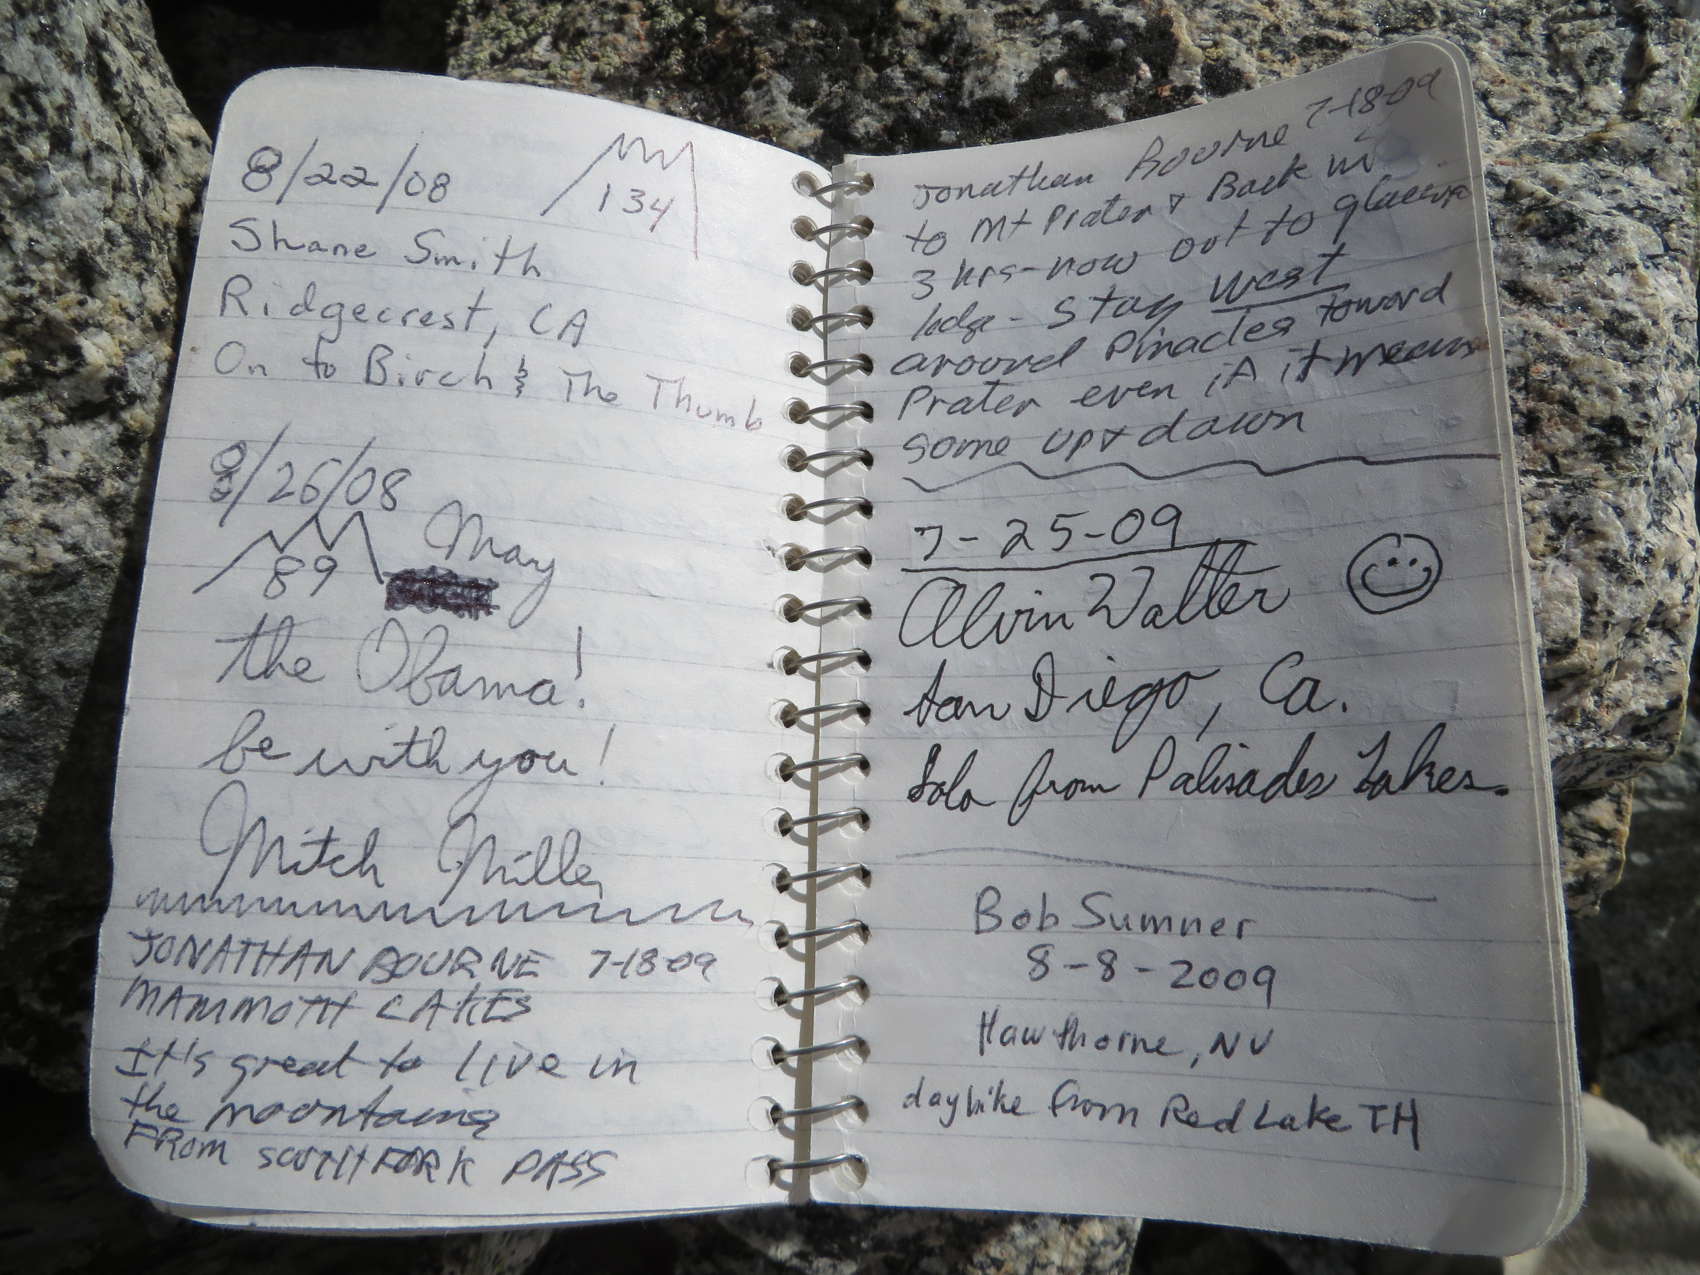 8/22/08
134
Shane Smith
Ridgecrest, CA
On to Birch & The Thumb
8/26/08
89 May
the Obama!
be with you!
Mitch Miller
JONATHAN BOURNE 7-18-09
MAMMOTH LAKES
It's great to live in
the mountains
FROM SOUTH FORK PASS
Jonathan Bourne 7-18-09
to Mt Prater & Back in
3 hrs - now out to glacier
ledge - Stay West
around Pinacles toward
Prater even if it means
some up & down
7-25-09
Alvin Walter
San Diego, Ca.
Solo from Palisades Lakes.
Bob Sumner
8-8-2009
Hawthorne, NV
dayhike from Red Lake TH